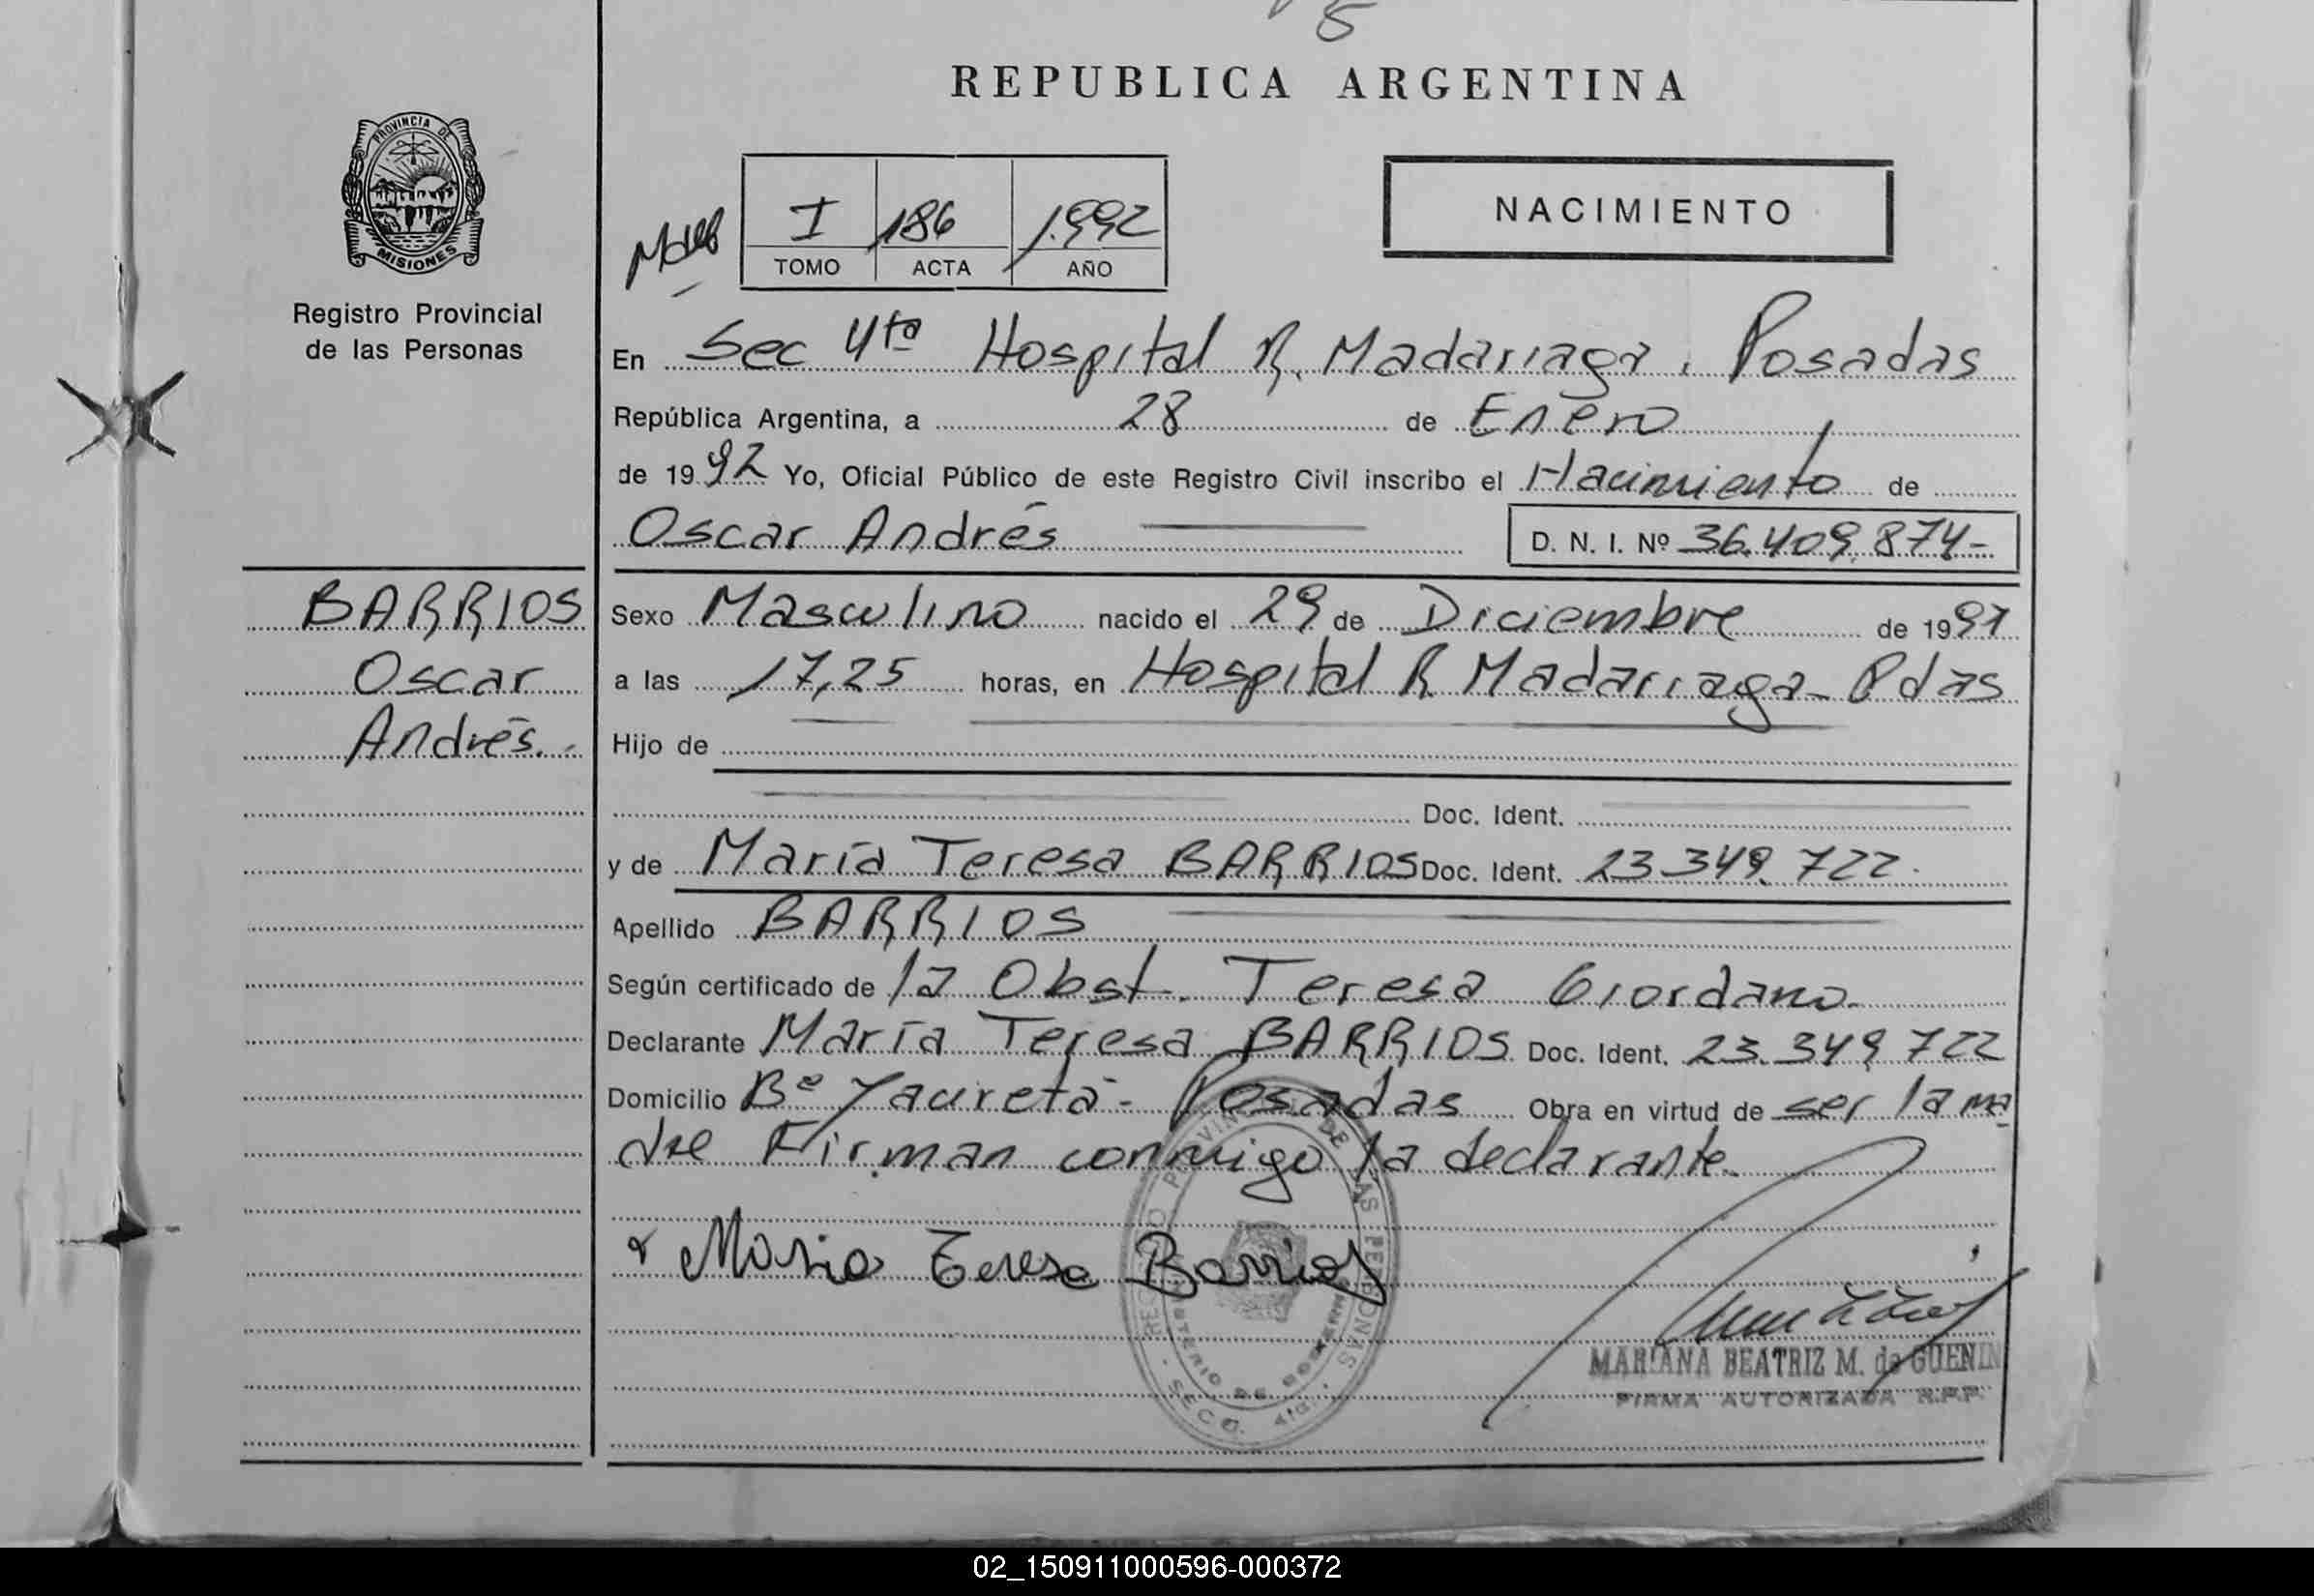 8
REPUBLICA ARGENTINA
PROVINCIA DE
MISIONES
Registro Provincial
de las Personas
I 186 1.992
TOMO ACTA AÑO
NACIMIENTO
En Sec 4ta Hospital R. Madariaga. Posadas
República Argentina, a 28 de Enero
de 1992 Yo, Oficial Público de este Registro Civil inscribo el Nacimiento de
Oscar Andrés D. N. I. Nº 36.409.874-
BARRIOS
Oscar
Andrés.-
Sexo Masculino nacido el 29 de Diciembre de 1991
a las 17,25 horas, en Hospital R Madariaga- Pdas
Hijo de
Doc. Ident.
y de María Teresa BARRIOS Doc. Ident. 23.349.722.
Apellido BARRIOS
Según certificado de la Obst. Teresa Giordano.
Declarante María Teresa BARRIOS. Doc. Ident. 23.349.722
Domicilio Bº Yacireta- Posadas Obra en virtud de ser la ma
dre Firman conmigo la declarante.
Maria Teresa Barrios
REGISTRO PROVINCIAL DE LAS PERSONAS
MINISTERIO DE GOBIERNO
SECC. 4ta.
MARIANA BEATRIZ M. de GUENIN
FIRMA AUTORIZADA R.P.P.
02_150911000596-000372